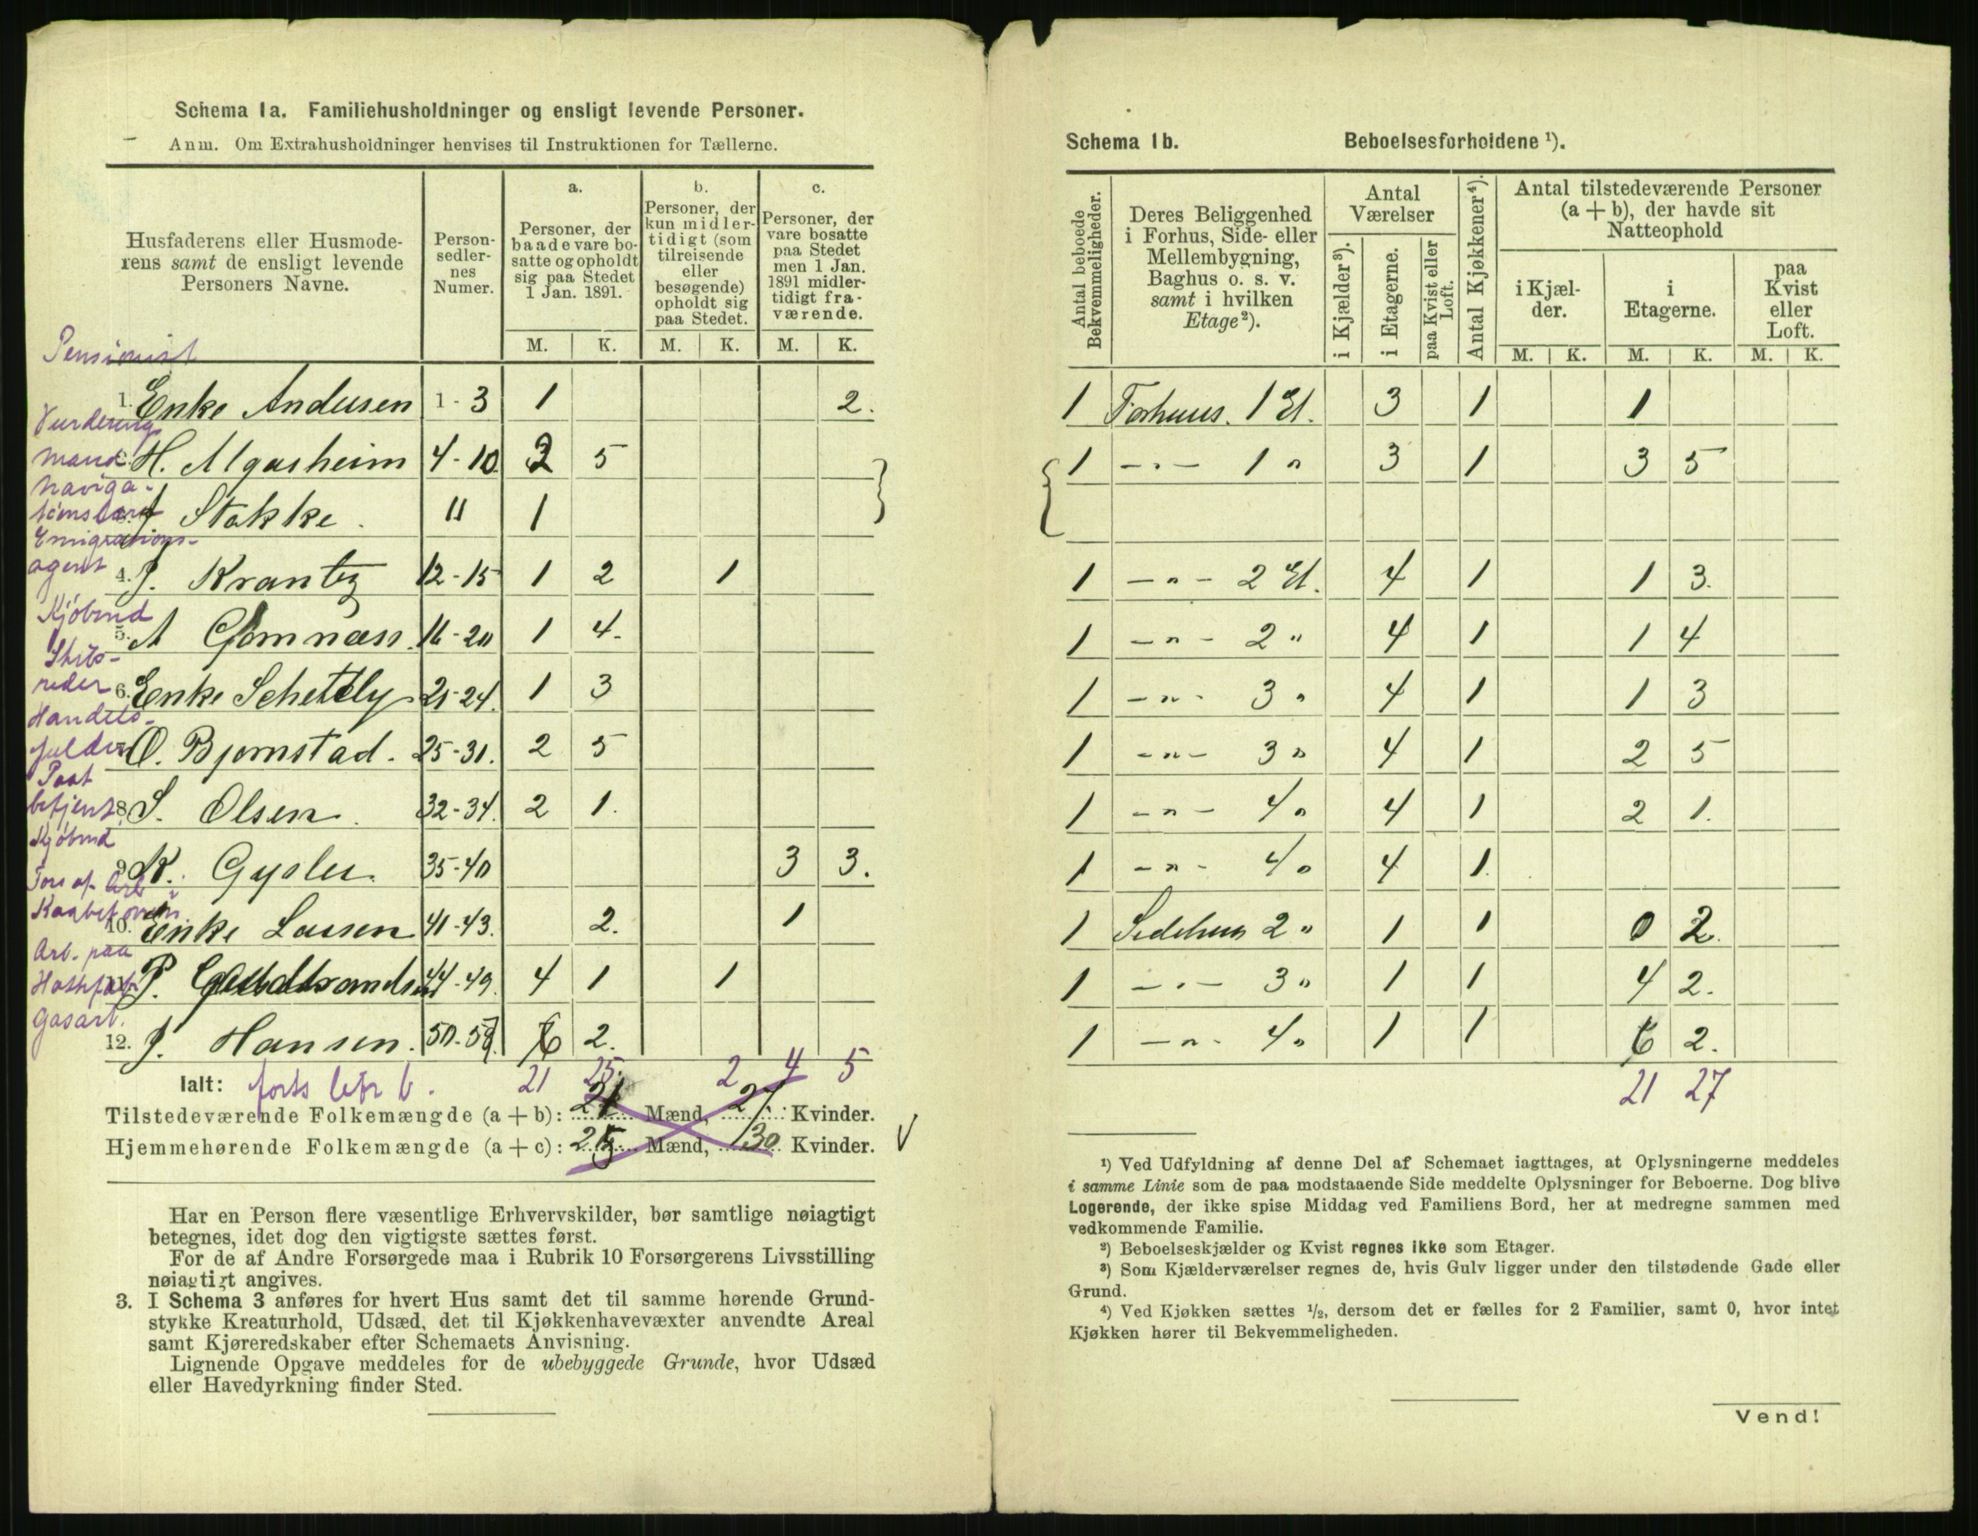 Schema 1a. Familiehusholdninger og ensligt levende Personer.
Anm. Om Extrahusholdninger henvises til Instruktionen for Tællerne.
Husfaderens eller Husmoderens samt de ensligt levende Personers Navne.
Person-sedlernes Numer.
a.
Personer, der baade vare bosatte og opholdt sig paa Stedet 1 Jan. 1891.
b.
Personer, der kun midlertidigt (som tilreisende eller besøgende) opholdt sig paa Stedet.
c.
Personer, der vare bosatte paa Stedet men 1 Jan. 1891 midlertidigt fraværende.
M. K. M. K. M. K.
Pensionist
1. Enke Andersen 1-3 1 2.
Vurderingsmand
H. Algasheim 4-10 3 5
Naviga-
J Stokke. 11 1
Emigrations-
agent 4. J. Krantz 12-15 1 2 1
Kjöbmd
5. A Gomnæss. 16-20 1 4.
Skibs-
reder 6. Enke Schetely 21-24. 1 3
Handels-
O. Bjørnstad. 25-31. 2 5
Post
betjent 8. S. Olsen. 32-34. 2 1.
Kjöbmd
9. K. Gysler. 35-40 3 3.
10. Enke Lassen 41-43. 2. 1
Arb. paa
P. Guldbrandsen 44-49. 4 1 1
Gasarb.
12. J. Hansen. 50-57. 6 2.
Ialt: 21 25. 2 4 5
Tilstedeværende Folkemængde (a + b): 21 Mænd, 27. Kvinder.
Hjemmehørende Folkemængde (a + c): 25 Mænd, 30 Kvinder. V
Har en Person flere væsentlige Erhvervskilder, bør samtlige nøiagtigt
betegnes, idet dog den vigtigste sættes først.
For de af Andre Forsørgede maa i Rubrik 10 Forsørgerens Livsstilling
nøiagtigt angives.
3. I Schema 3 anføres for hvert Hus samt det til samme hørende Grund-
stykke Kreaturhold, Udsæd, det til Kjøkkenhavevæxter anvendte Areal
samt Kjøreredskaber efter Schemaets Anvisning.
Lignende Opgave meddeles for de ubebyggede Grunde, hvor Udsæd
eller Havedyrkning finder Sted.
Schema 1b. Beboelsesforholdene ¹).
Antal beboede Bekvemmeligheder.
Deres Beliggenhed i Forhus, Side- eller Mellembygning, Baghus o. s. v. samt i hvilken Etage²).
Antal Værelser
i Kjælder³).
i Etagerne.
paa Kvist eller Loft.
Antal Kjøkkener⁴).
Antal tilstedeværende Personer (a + b), der havde sit Natteophold
i Kjælder.
i Etagerne.
paa Kvist eller Loft.
M. K. M. K. M. K.
1 Forhuus. 1 Et. 3 1 1
1 -"- 1 " 3 1 3 5
1 -"- 2 Et. 4 1 1 3.
1 -"- 2 " 4 1 1 4
1 -"- 3 " 4 1 1 3
1 -"- 3 " 4 1 2 5
1 -"- 4 " 4 1 2 1.
1 -"- 4 " 4 1
1 Sidehuus 2 " 1 1 0 2.
1 -"- 3 " 1 1 4 2.
1 -"- 4 " 1 1 6 2.
21 27
¹) Ved Udfyldning af denne Del af Schemaet iagttages, at Oplysningerne meddeles
i samme Linie som de paa modstaaende Side meddelte Oplysninger for Beboerne. Dog blive
Logerende, der ikke spise Middag ved Familiens Bord, her at medregne sammen med
vedkommende Familie.
²) Beboelseskjælder og Kvist regnes ikke som Etager.
³) Som Kjælderværelser regnes de, hvis Gulv ligger under den tilstødende Gade eller
Grund.
⁴) Ved Kjøkken sættes ½, dersom det er fælles for 2 Familier, samt 0, hvor intet
Kjøkken hører til Bekvemmeligheden.
Vend!